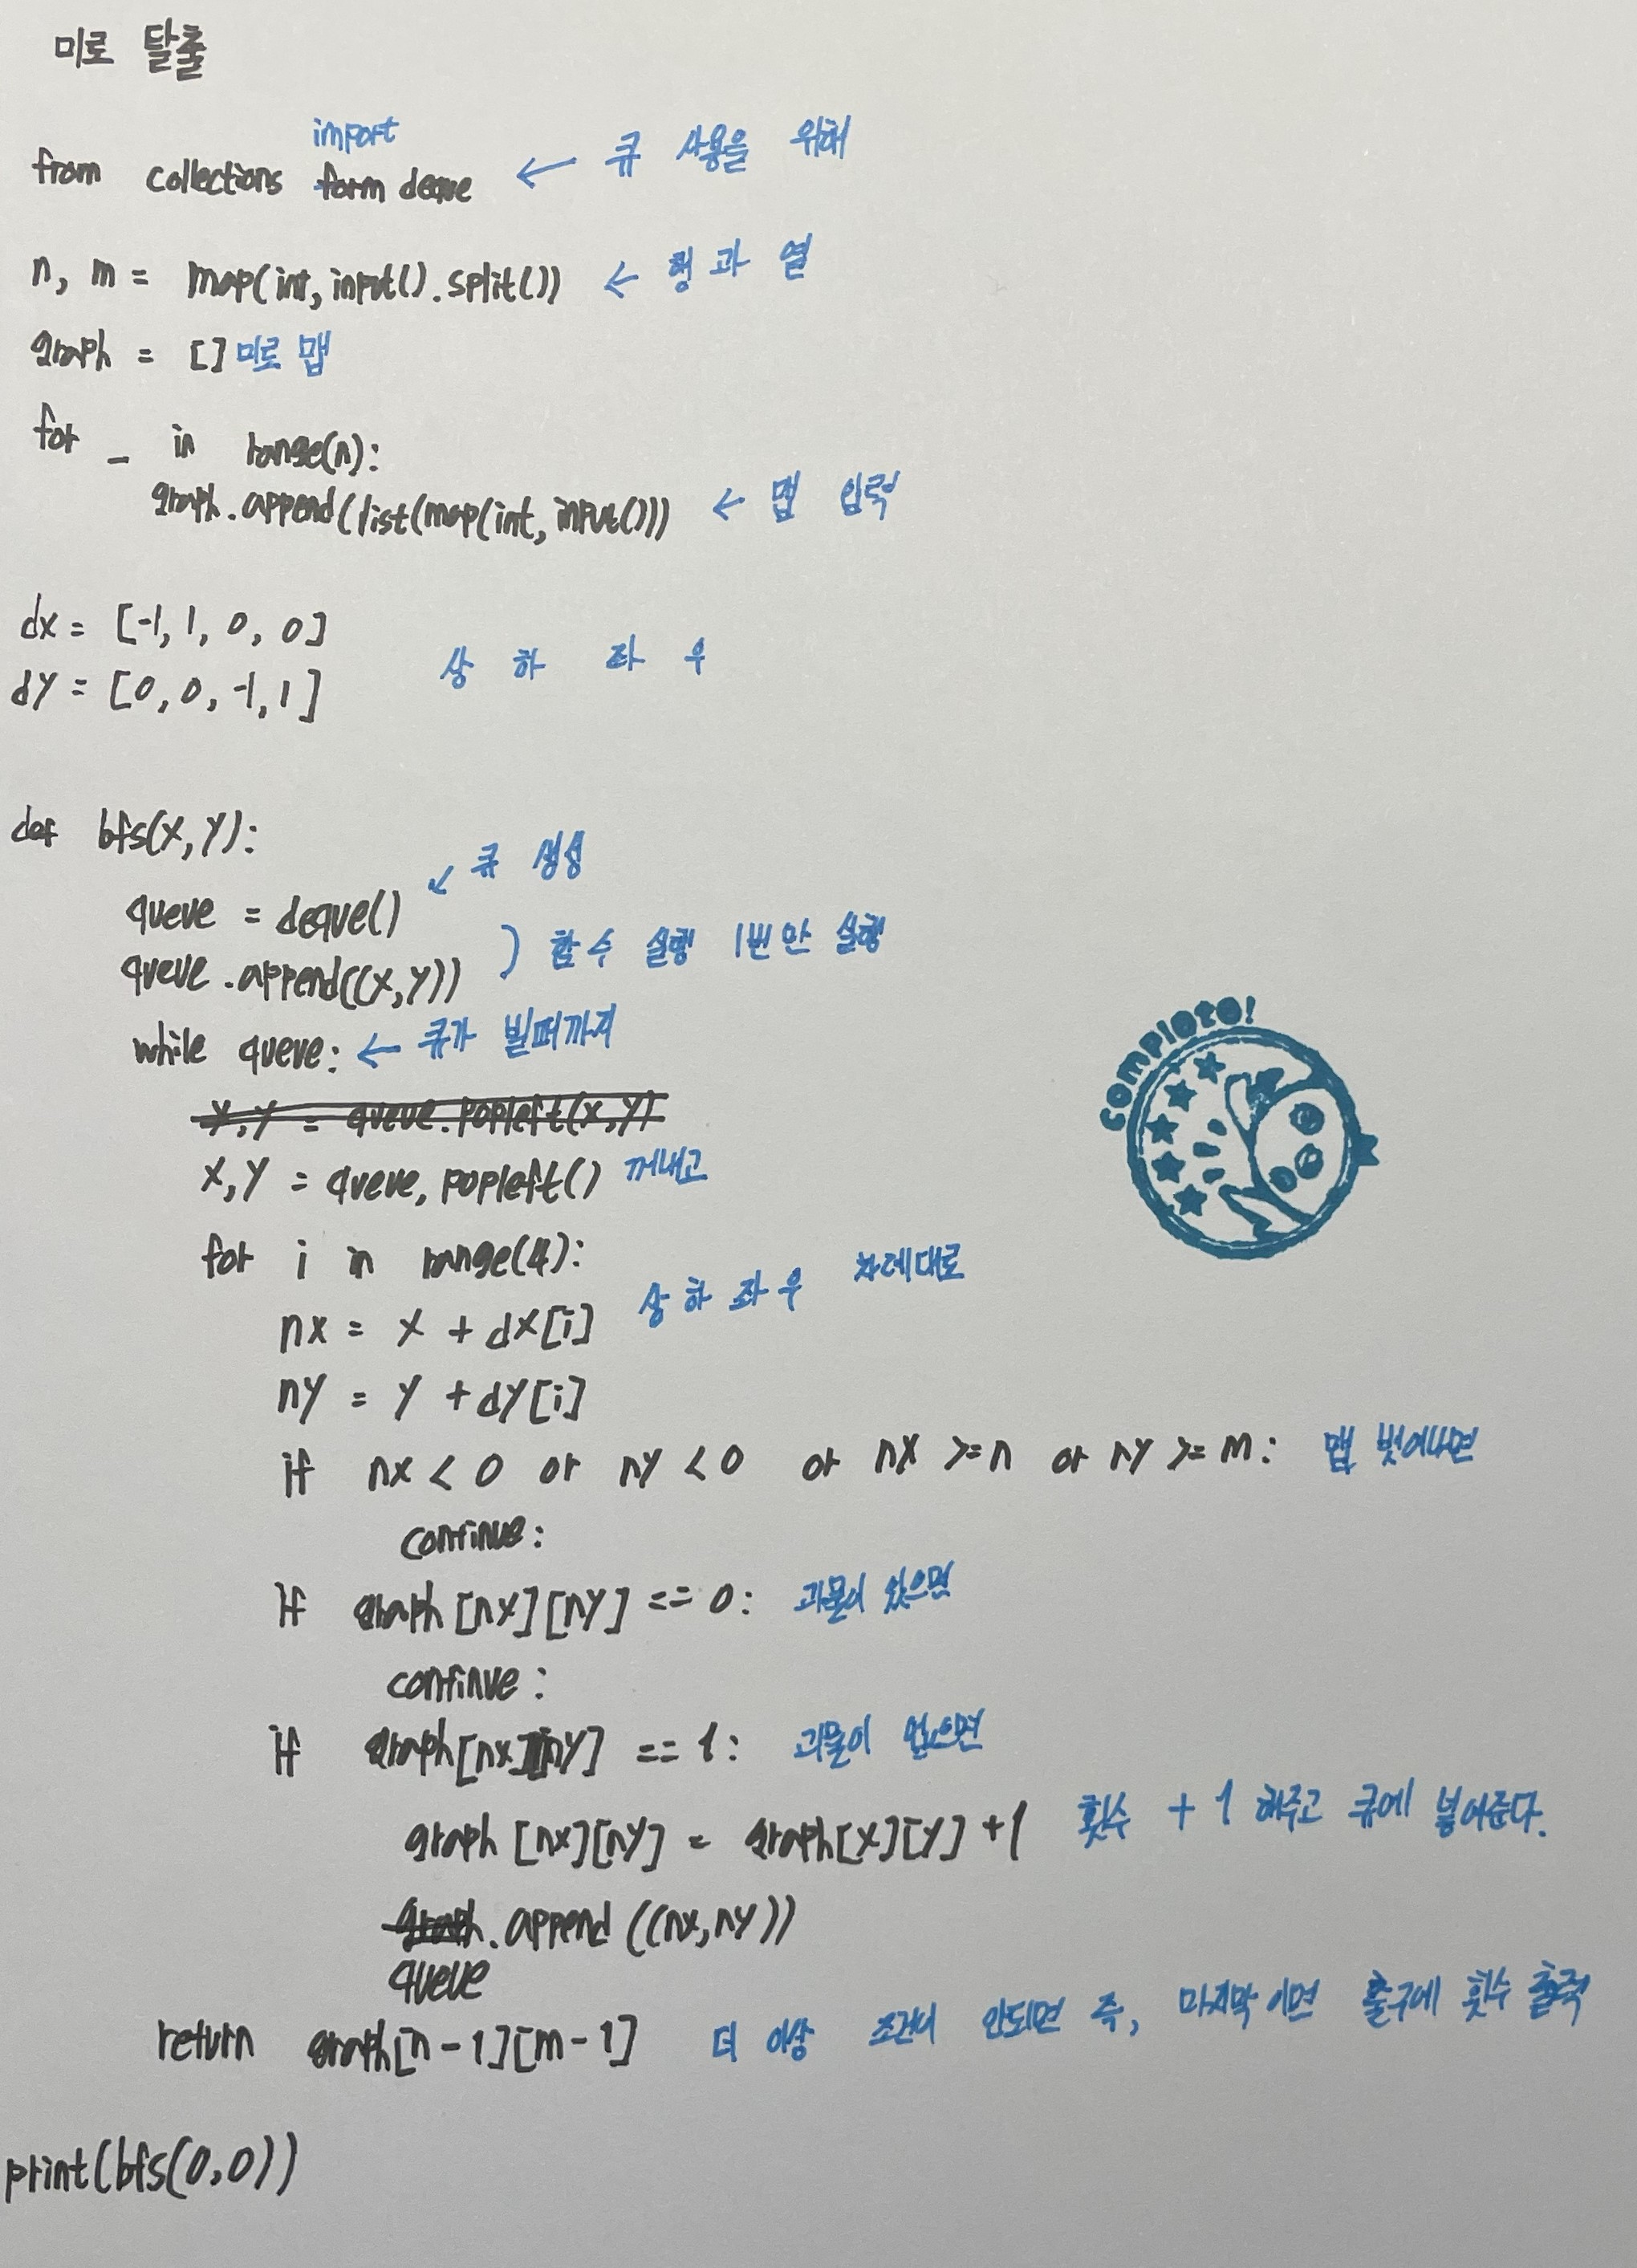 미로 탈출
import
from collections form deque ← 큐 사용을 위해
n, m = map(int, input().split()) ← 행과 열
graph = [] 미로 맵
for _ in range(n):
graph.append(list(map(int, input())) ← 맵 입력
dx = [-1, 1, 0, 0]
상 하 좌 우
dy = [0, 0, -1, 1]
def bfs(x, y):
↙ 큐 생성
queue = deque()
) 함수 실행 1번만 실행
queue.append((x, y))
while queue: ← 큐가 빌때까지
x, y = queue.popleft(x, y)
x, y = queue, popleft() 꺼내고
for i in range(4):
상 하 좌 우 차례대로
nx = x + dx[i]
ny = y + dy[i]
if nx < 0 or ny < 0 or nx >= n or ny >= m: 맵 벗어나면
continue:
if graph[nx][ny] == 0: 괴물이 있으면
continue:
if graph[nx][ny] == 1: 괴물이 없으면
graph[nx][ny] = graph[x][y] + 1 횟수 + 1 해주고 큐에 넣어준다.
graph.append((nx, ny))
queue
return graph[n-1][m-1] 더 이상 조건이 안되면 즉, 마지막이면 출구에 횟수 출력
print(bfs(0,0))
complete!